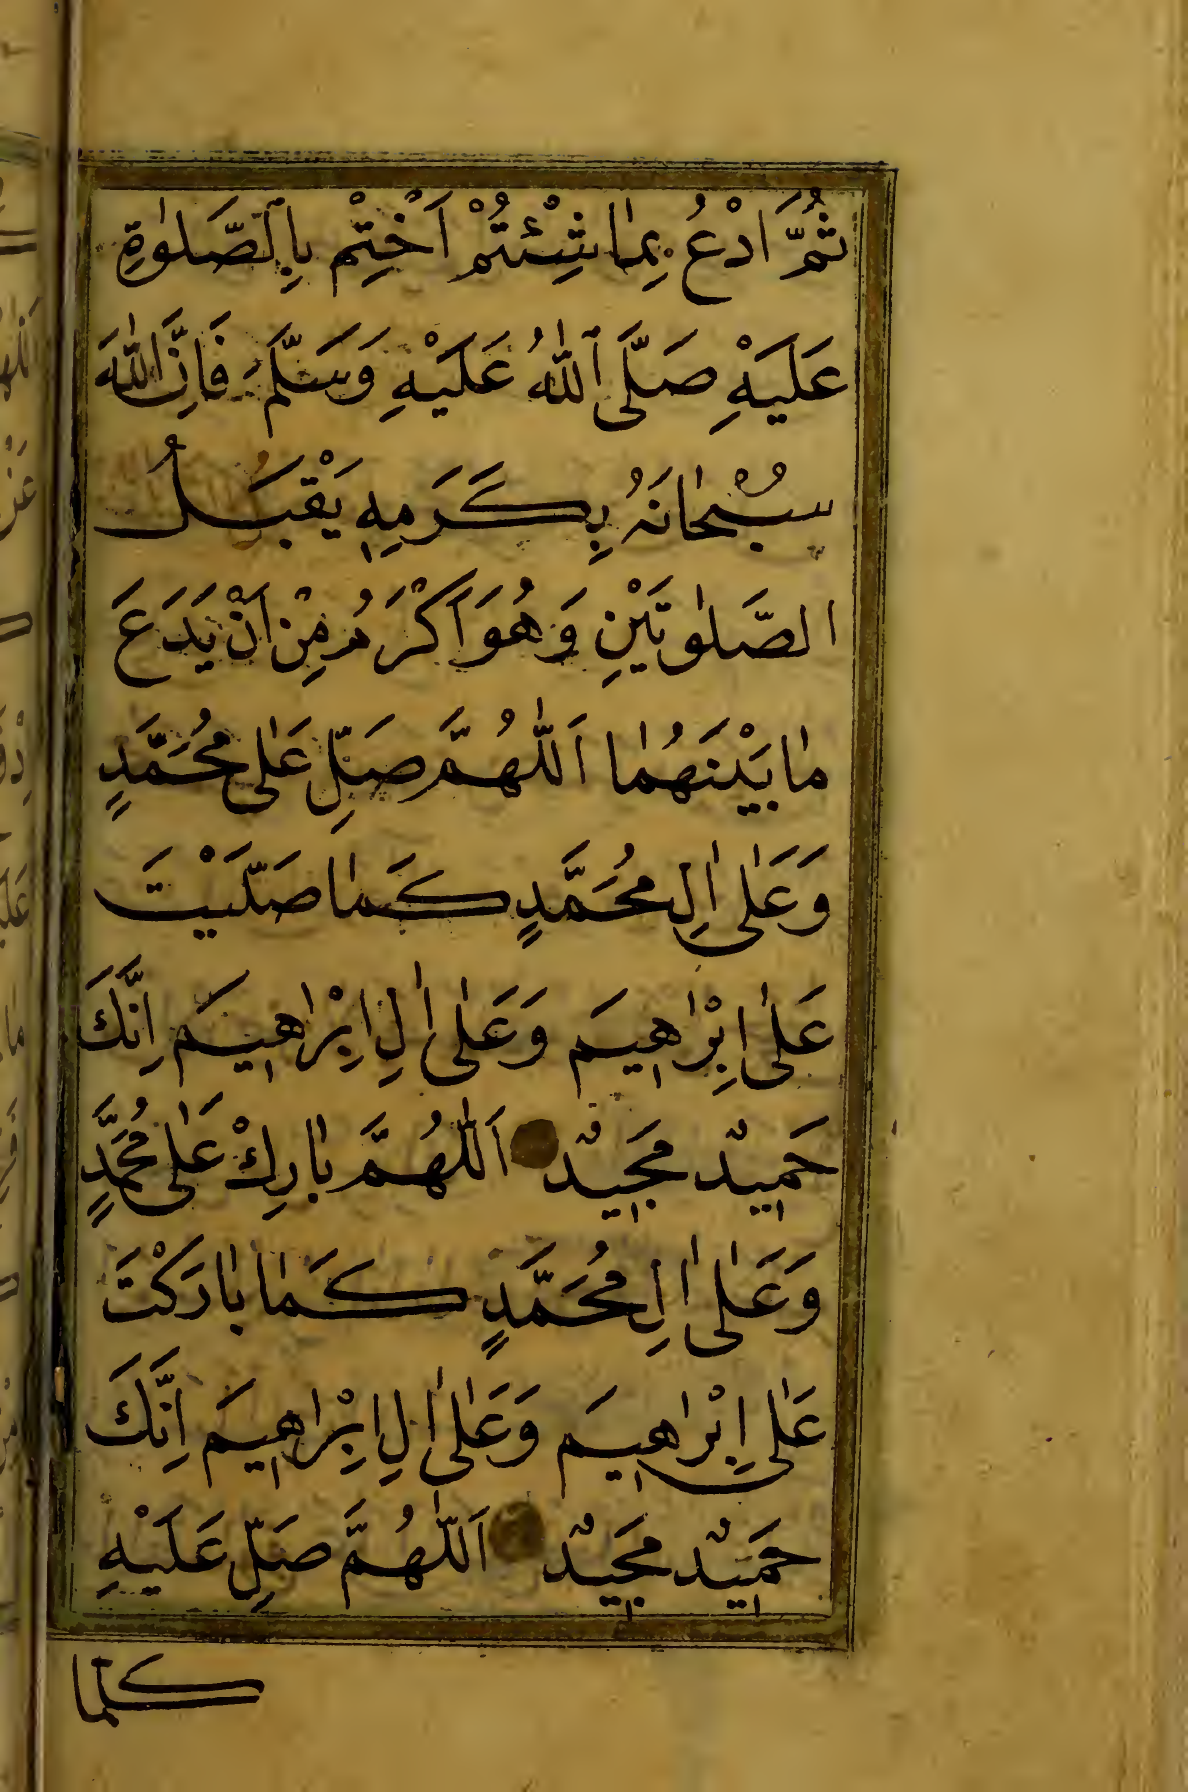 ثُمَّ ادْعُ بِمٰا شِئْتُمْ اَخْتِمْ بِالصَّلوٰةِ
عَلَيْهِ صَلَّى اللّٰهُ عَلَيْهِ وَسَلَّمَ فَاِنَّ اللّٰهَ
سُبْحٰانَهُ بِكَرَمِهِ يَقْبَلُ
الصَّلوٰتَيْنِ وَهُوَ اَكْرَمُ مِنْ اَنْ يَدَعَ
مٰا بَيْنَهُمٰا اَللّٰهُمَّ صَلِّ عَلٰى مُحَمَّدٍ
وَعَلٰى اٰلِ مُحَمَّدٍ كَمٰا صَلَّيْتَ
عَلٰى اِبْرٰاهِيمَ وَعَلٰى اٰلِ اِبْرٰاهِيمَ اِنَّكَ
حَمِيدٌ مَجِيدٌ اَللّٰهُمَّ بٰارِكْ عَلٰى مُحَمَّدٍ
وَعَلٰى اٰلِ مُحَمَّدٍ كَمٰا بٰارَكْتَ
عَلٰى اِبْرٰاهِيمَ وَعَلٰى اٰلِ اِبْرٰاهِيمَ اِنَّكَ
حَمِيدٌ مَجِيدٌ اَللّٰهُمَّ صَلِّ عَلَيْهِ
كلما